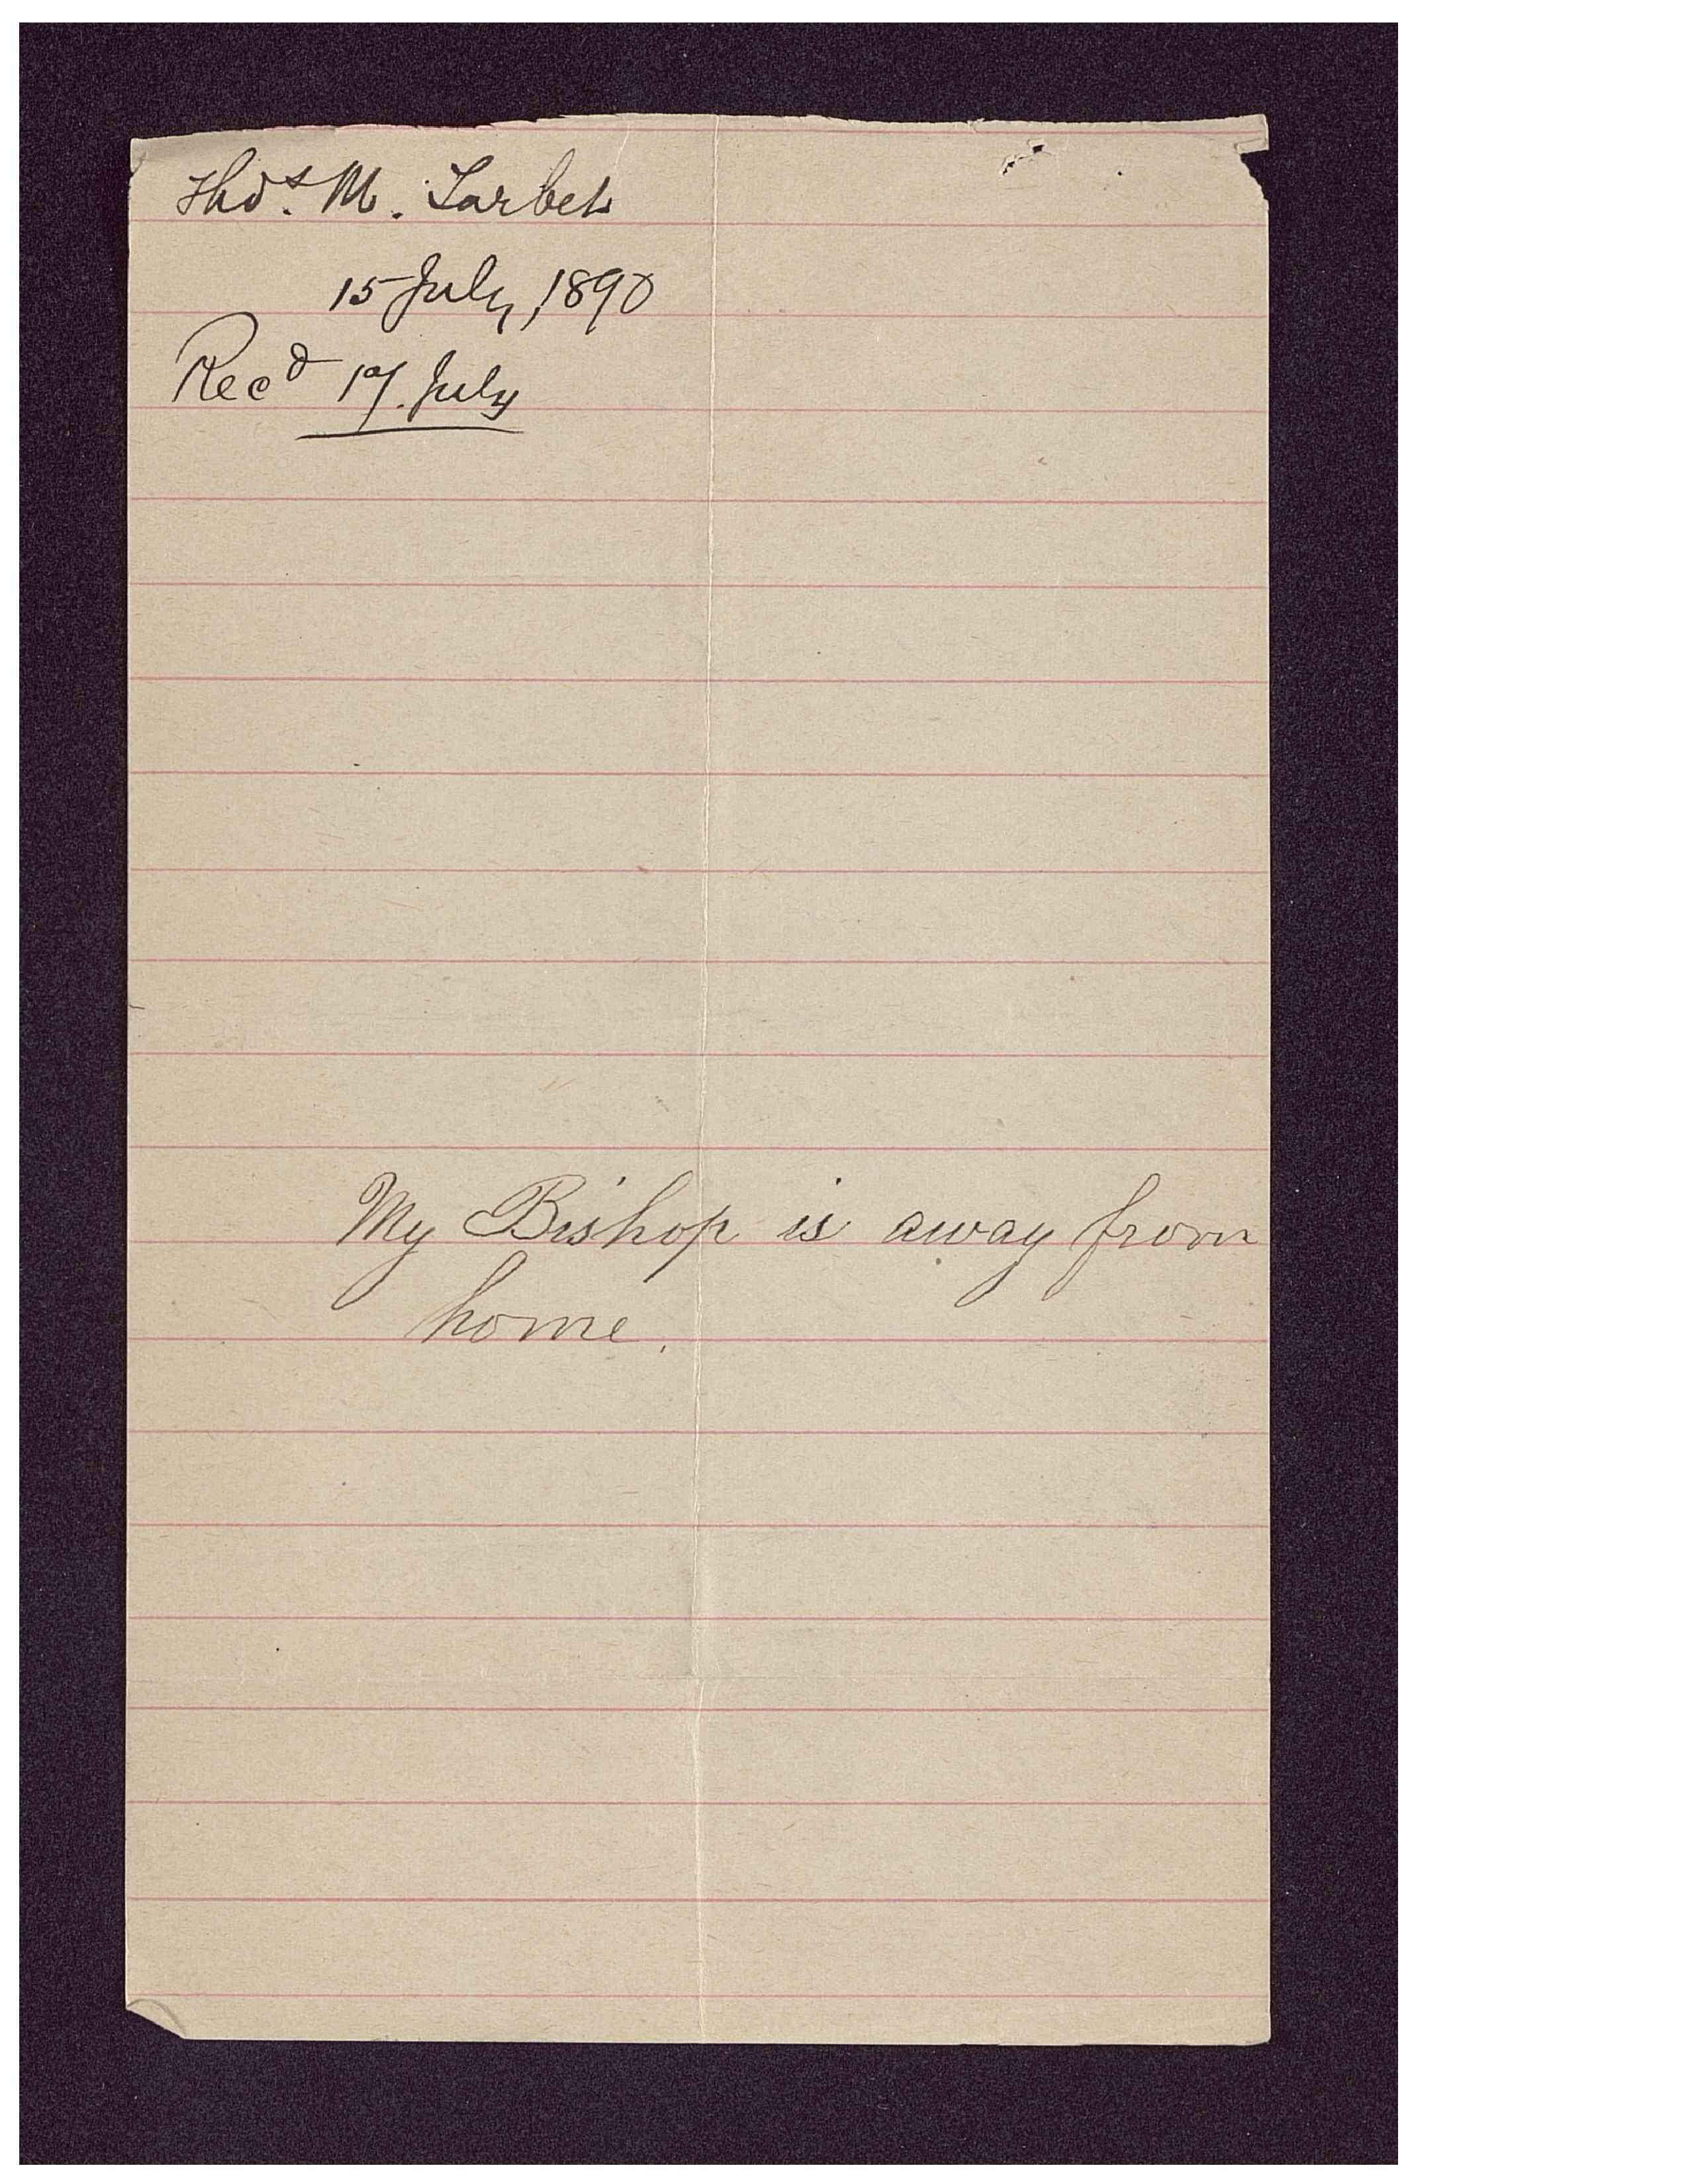 Thos. M.
15 July, 1890
Recd 17. July
My Bishop is away from
home.